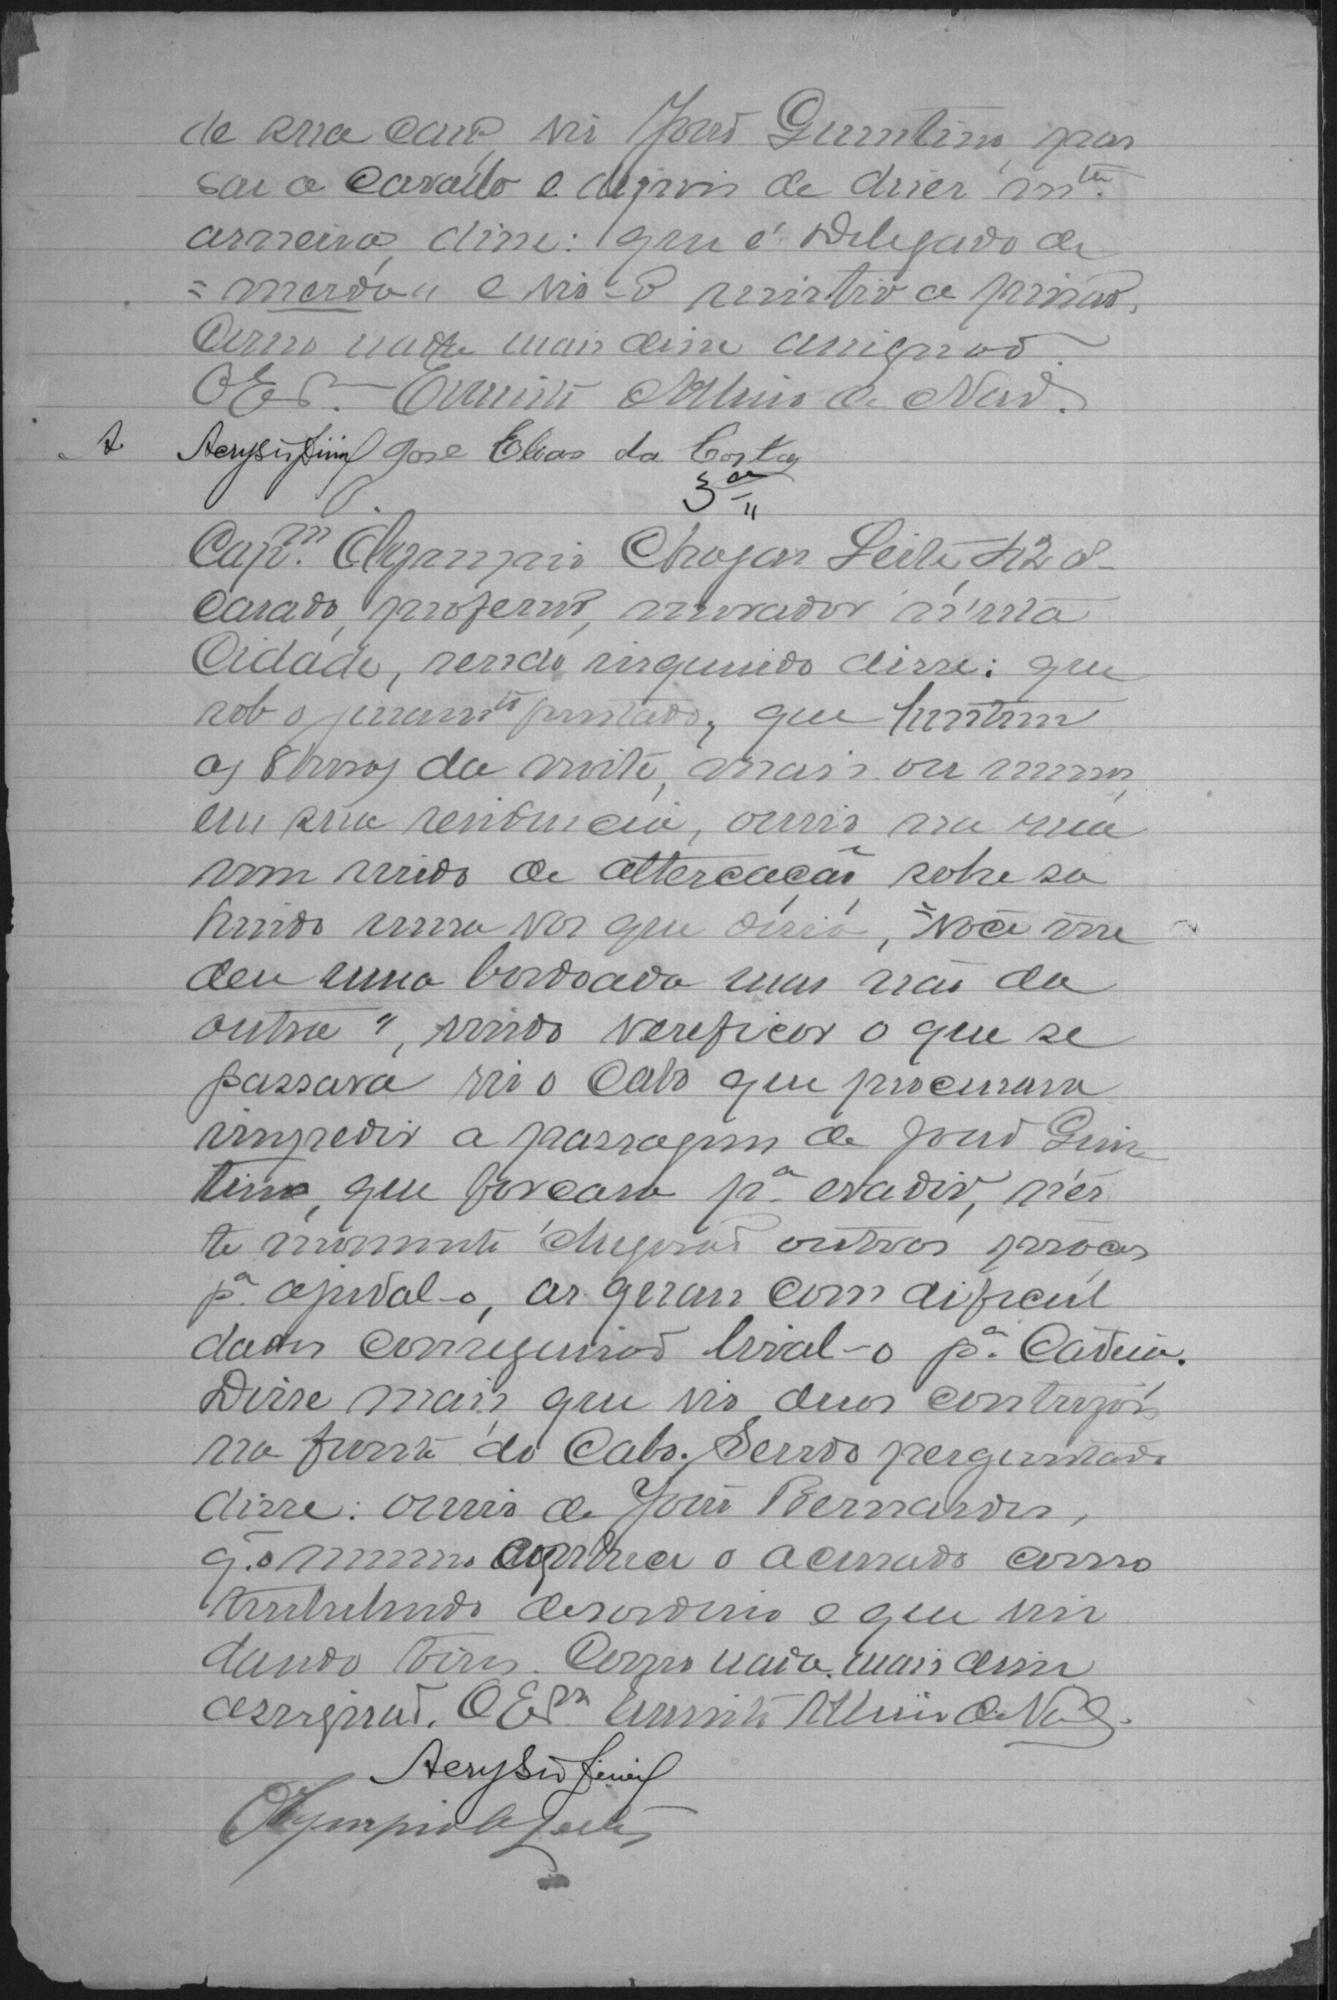 de sua casa, vio João Quintino, pas
sar a cavallo e depois de dizer m.tas
asneiras, disse: que é Delegado de
"merda" e vio-o resistir a prisão.
Como nada mais disse assignão.
O Es.
A Acrysio José Elias da Costa
3ª "
Cap.m Olympio Chagas Leite, 42 a
casado, professor, morador n'esta
Cidade, sendo inquerido disse: que
sob o juram.to prestado, que hontem
as 8 horas da noite, mais ou menos,
em sua residencia, ouvio na rua
um ruido de altercação sobre sa
hindo uma vos que dizia, "Você me
deu uma bordoada mas não da
outra", vindo vereficar o que se
passava vio o Cabo que procurava
impedir a passagem de João Quin
tino, que forcava p.a evadir, n'es
te momento chegarão outros praças
p.a ajudal-o, as quaes com dificul
dades conseguirão leval-o p.a Cadeia.
Disse mais que vio duas contuzões
na fronte do Cabo. Sendo perguntado
disse: ouvio de João Bernardes,
q. o mesmo conhece o acusado como
turbulento desordeiro e que vive
dando tiros. Como nada mais disse
assignão. O Es.m
Acrysio
Olympio C Leite